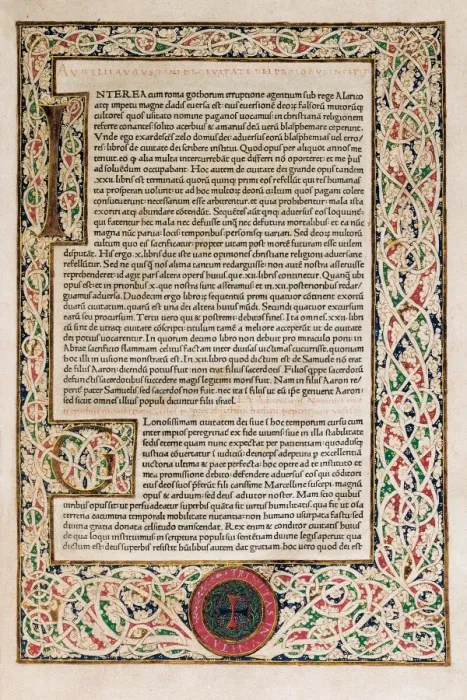 AVRELII AVGVSTINI DE CIVITATE DEI PROLOGVS INCIPIT
INTEREA cum roma gothorum irruptione agentium sub rege Alarico
atq; impetu magne cladis euersa est: eius euersionē deoȝ falsorū mutorūq;
cultores quos usitato nomine paganos uocamus in christianā religionem
referre conantes solito acerbius & amarius deū uerū blasphemare ceperunt.
Vnde ego exardescēs zelo domus dei: aduersus eorū blasphemias uel erro/
res: libros de ciuitate dei scribere institui. Quod opus per aliquot annos me
tenuit. eo q alia multa intercurrebāt que differri nō oporteret: et me prius
ad soluēdum occupabant. Hoc autem de ciuitate dei grande opus tandem
.xxii. libris est terminatū quorū quinq; primi eos refellūt qui res humanas
ita prosperari uolunt: ut ad hoc multoȝ deorū cultum quos pagani colere
consueuerunt: necessarium esse arbitrentur. et quia prohibentur: mala ista
exoriri atq; abundare cōtendūt. Sequētes aūt qnq; aduersus eos loquunť:
qui fatentur hec mala nec defuisse unq nec defutura mortalibus: et ea nūc
magna nūc parua: locis temporibus personisq; uariari. Sed deoȝ multorū
cultum quo eis sacrificatur: propter uitam post mortē futuram esse utilem
disputāt. His ergo .x. libris due iste uane opiniones christiane religioni aduersarie
refellūtur. Sed ne quisq nos aliena tantum redarguisse: non autē nostra asseruisse
reprehenderet: id agit pars altera operis huius que .xii. libris continetur. Quanq ubi
opus est: et in prioribus .x. que nostra sunt asseramus: et in .xii. posterioribus redar/
guamus aduersa. Duodecim ergo libroȝ sequentiū primi quatuor cōtinent exortū
duarū ciuitatum. quarū est una dei altera huius mūdi. Secundi quatuor excursum
earū seu procursum. Tertii uero qui & postremi: debitos fines. Ita omnes .xxii. libri
cū sint de utraq; ciuitate cōscripti: titulum tamē a meliore acceperūt ut de ciuitate
dei potius uocarentur. In quorum decimo libro non debuit pro miraculo poni: in
Abrae sacrificio flammam celitus factam inter diuisas uictimas cucurrisse. quoniam
hoc illi in uisione monstratū est. In .xvii. libro quod dictum est de Samuele nō erat
de filiis Aaron: dicendū potius fuit: non erat filius sacerdotis. Filios qppe sacerdotū
defunctis sacerdotibus succedere magis legitimi moris fuit. Nam in filiis Aaron re/
peritˀ pater Samuelis sed sacerdos non fuit. nec ita ī filiis ut eū ipse genuerit Aaron:
sed sicut omnes illius populi dicuntur filii israel.
GLoriosissimam ciuitatem dei siue ī hoc temporum cursu cum
inter impios peregrinatˀ ex fide uiuens: siue in illa stabilitate
sedis eterne quam nunc expectat per patientiam: quoadusq;
iustitia cōuertatur ī iudiciū: deinceps adeptura p excellentiā
uictoria ultima & pace perfecta: hoc opere ad te instituto et
mea promissione debito: defendere aduersus eos qui cōditori
eius deos suos p̄ferūt: fili carissime Marcelline suscepi: magnū
opus & arduum: sed deus adiutor noster. Nam scio quibus
uiribus opus sit: ut persuadeatur superbis quāta sit uirtus humilitatis. qua fit: ut oīa
terrena cacumina temporali mobilitate nutantia: non humano usurpata fastu: sed
diuina gratia donata celsitudo transcendat. Rex enim & conditor ciuitatis huius
de qua loqui instituimus: in scriptura populi sui sentētiam diuine legis aperuit: qua
dictum est: deus superbis resistit: hūilibus autem dat gratiam. hoc uero quod dei est